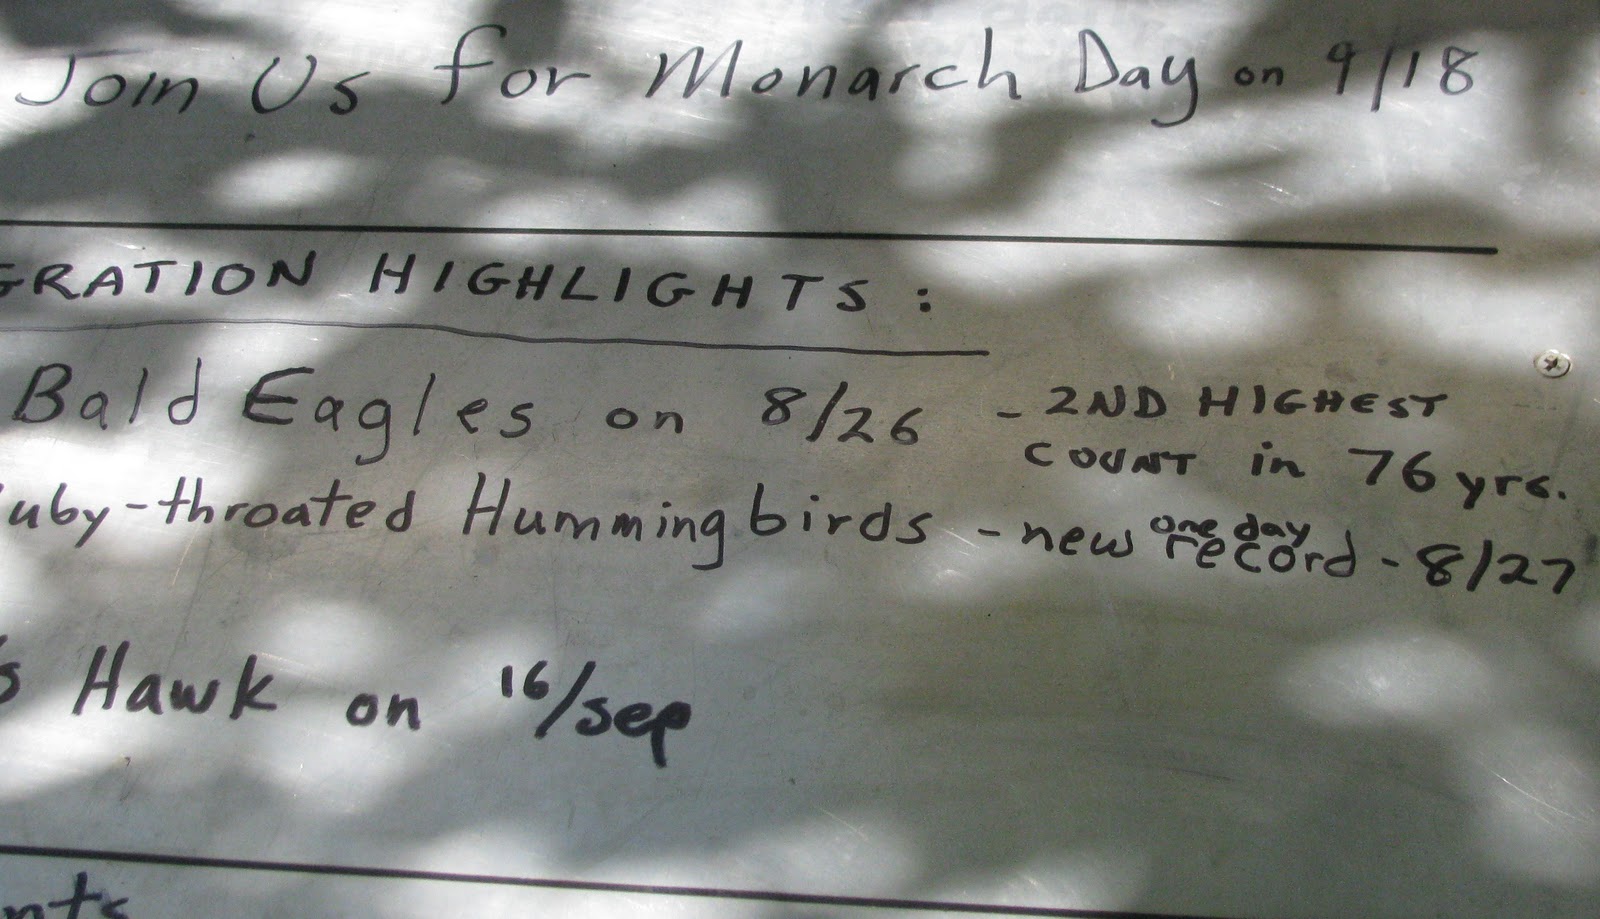 Join Us for Monarch Day on 9/18
GRATION HIGHLIGHTS :
Bald Eagles on 8/26 - 2ND HIGHEST
COUNT in 76 yrs.
uby-throated Hummingbirds - new one day record - 8/27
s Hawk on 16/sep
nts